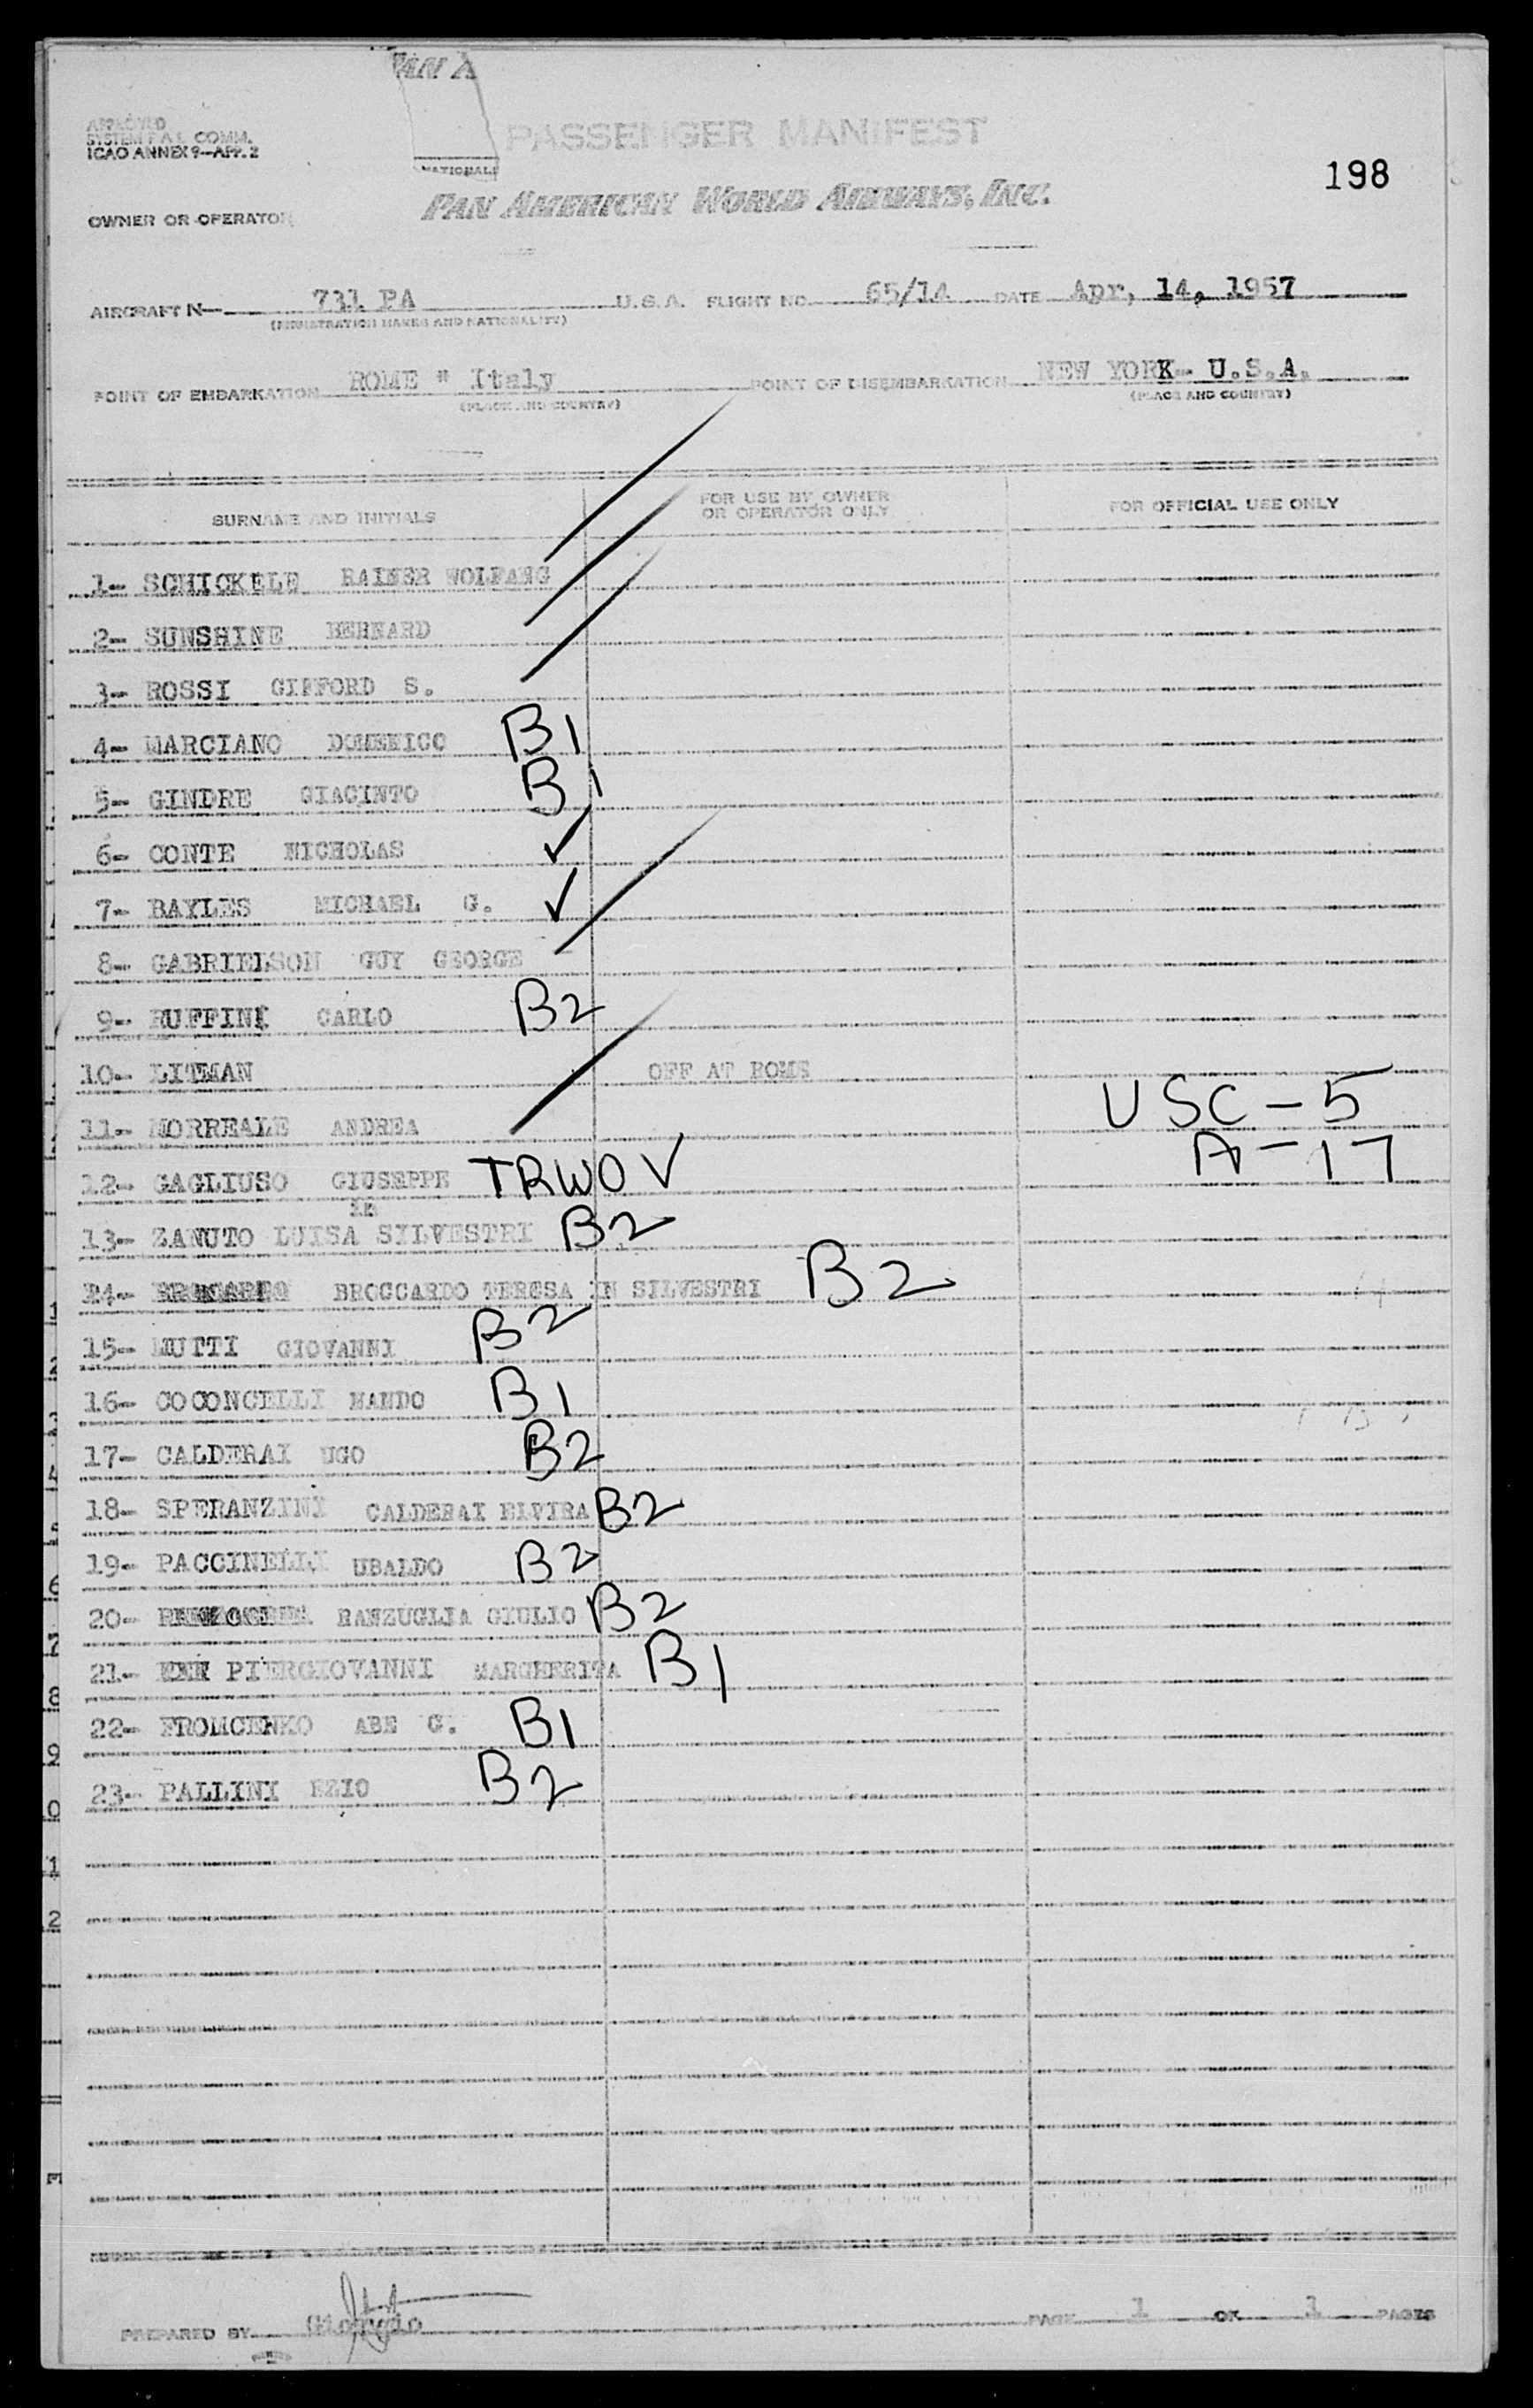 PAN A
APPROVED
SYSTEM F.A.L. COMM.
ICAO ANNEX 9—APP. 2
PASSENGER MANIFEST
198
OWNER OR OPERATOR
PAN AMERICAN WORLD AIRWAYS, INC.
AIRCRAFT N— 731 PA U.S.A. FLIGHT NO. 65/14 DATE Apr, 14, 1957
(REGISTRATION MARKS AND NATIONALITY)
POINT OF EMBARKATION ROME " Italy POINT OF DISEMBARKATION NEW YORK- U.S.A.
(PLACE AND COUNTRY) (PLACE AND COUNTRY)
SURNAME AND INITIALS FOR USE BY OWNER OR OPERATOR ONLY FOR OFFICIAL USE ONLY
1- SCHICKELE RAINER WOLFANG
2- SUNSHINE BERNARD
3- ROSSI GIFFORD S.
4- MARCIANO DOMENICO B1
5- GINDRE GIACINTO B1
6- CONTE NICHOLAS ✓
7- BAYLES MICHAEL G. ✓
8- GABRIELSON GUY GEORGE
9- RUFFINI CARLO B2
10- LITMAN OFF AT ROME
USC-5
11- MORREALE ANDREA
A-17
12- GAGLIUSO GIUSEPPE TRWOV
in
13- ZANUTO LUISA SILVESTRI B2
14- BROCCARDO TERESA IN SILVESTRI B2
15- MUTTI GIOVANNI B2
16- COCONCELLI MANDO B1
17- CALDERAI UGO B2
18- SPERANZINI CALDERAI ELVIRA B2
19- PACCINELLI UBALDO B2
20- RANZUGLIA GIULIO B2
21- PIERGIOVANNI MARGHERITA B1
22- FROMCENKO ABE G. B1
23- PALLINI EZIO B2
PREPARED BY PAGE 1 OF 1 PAGES